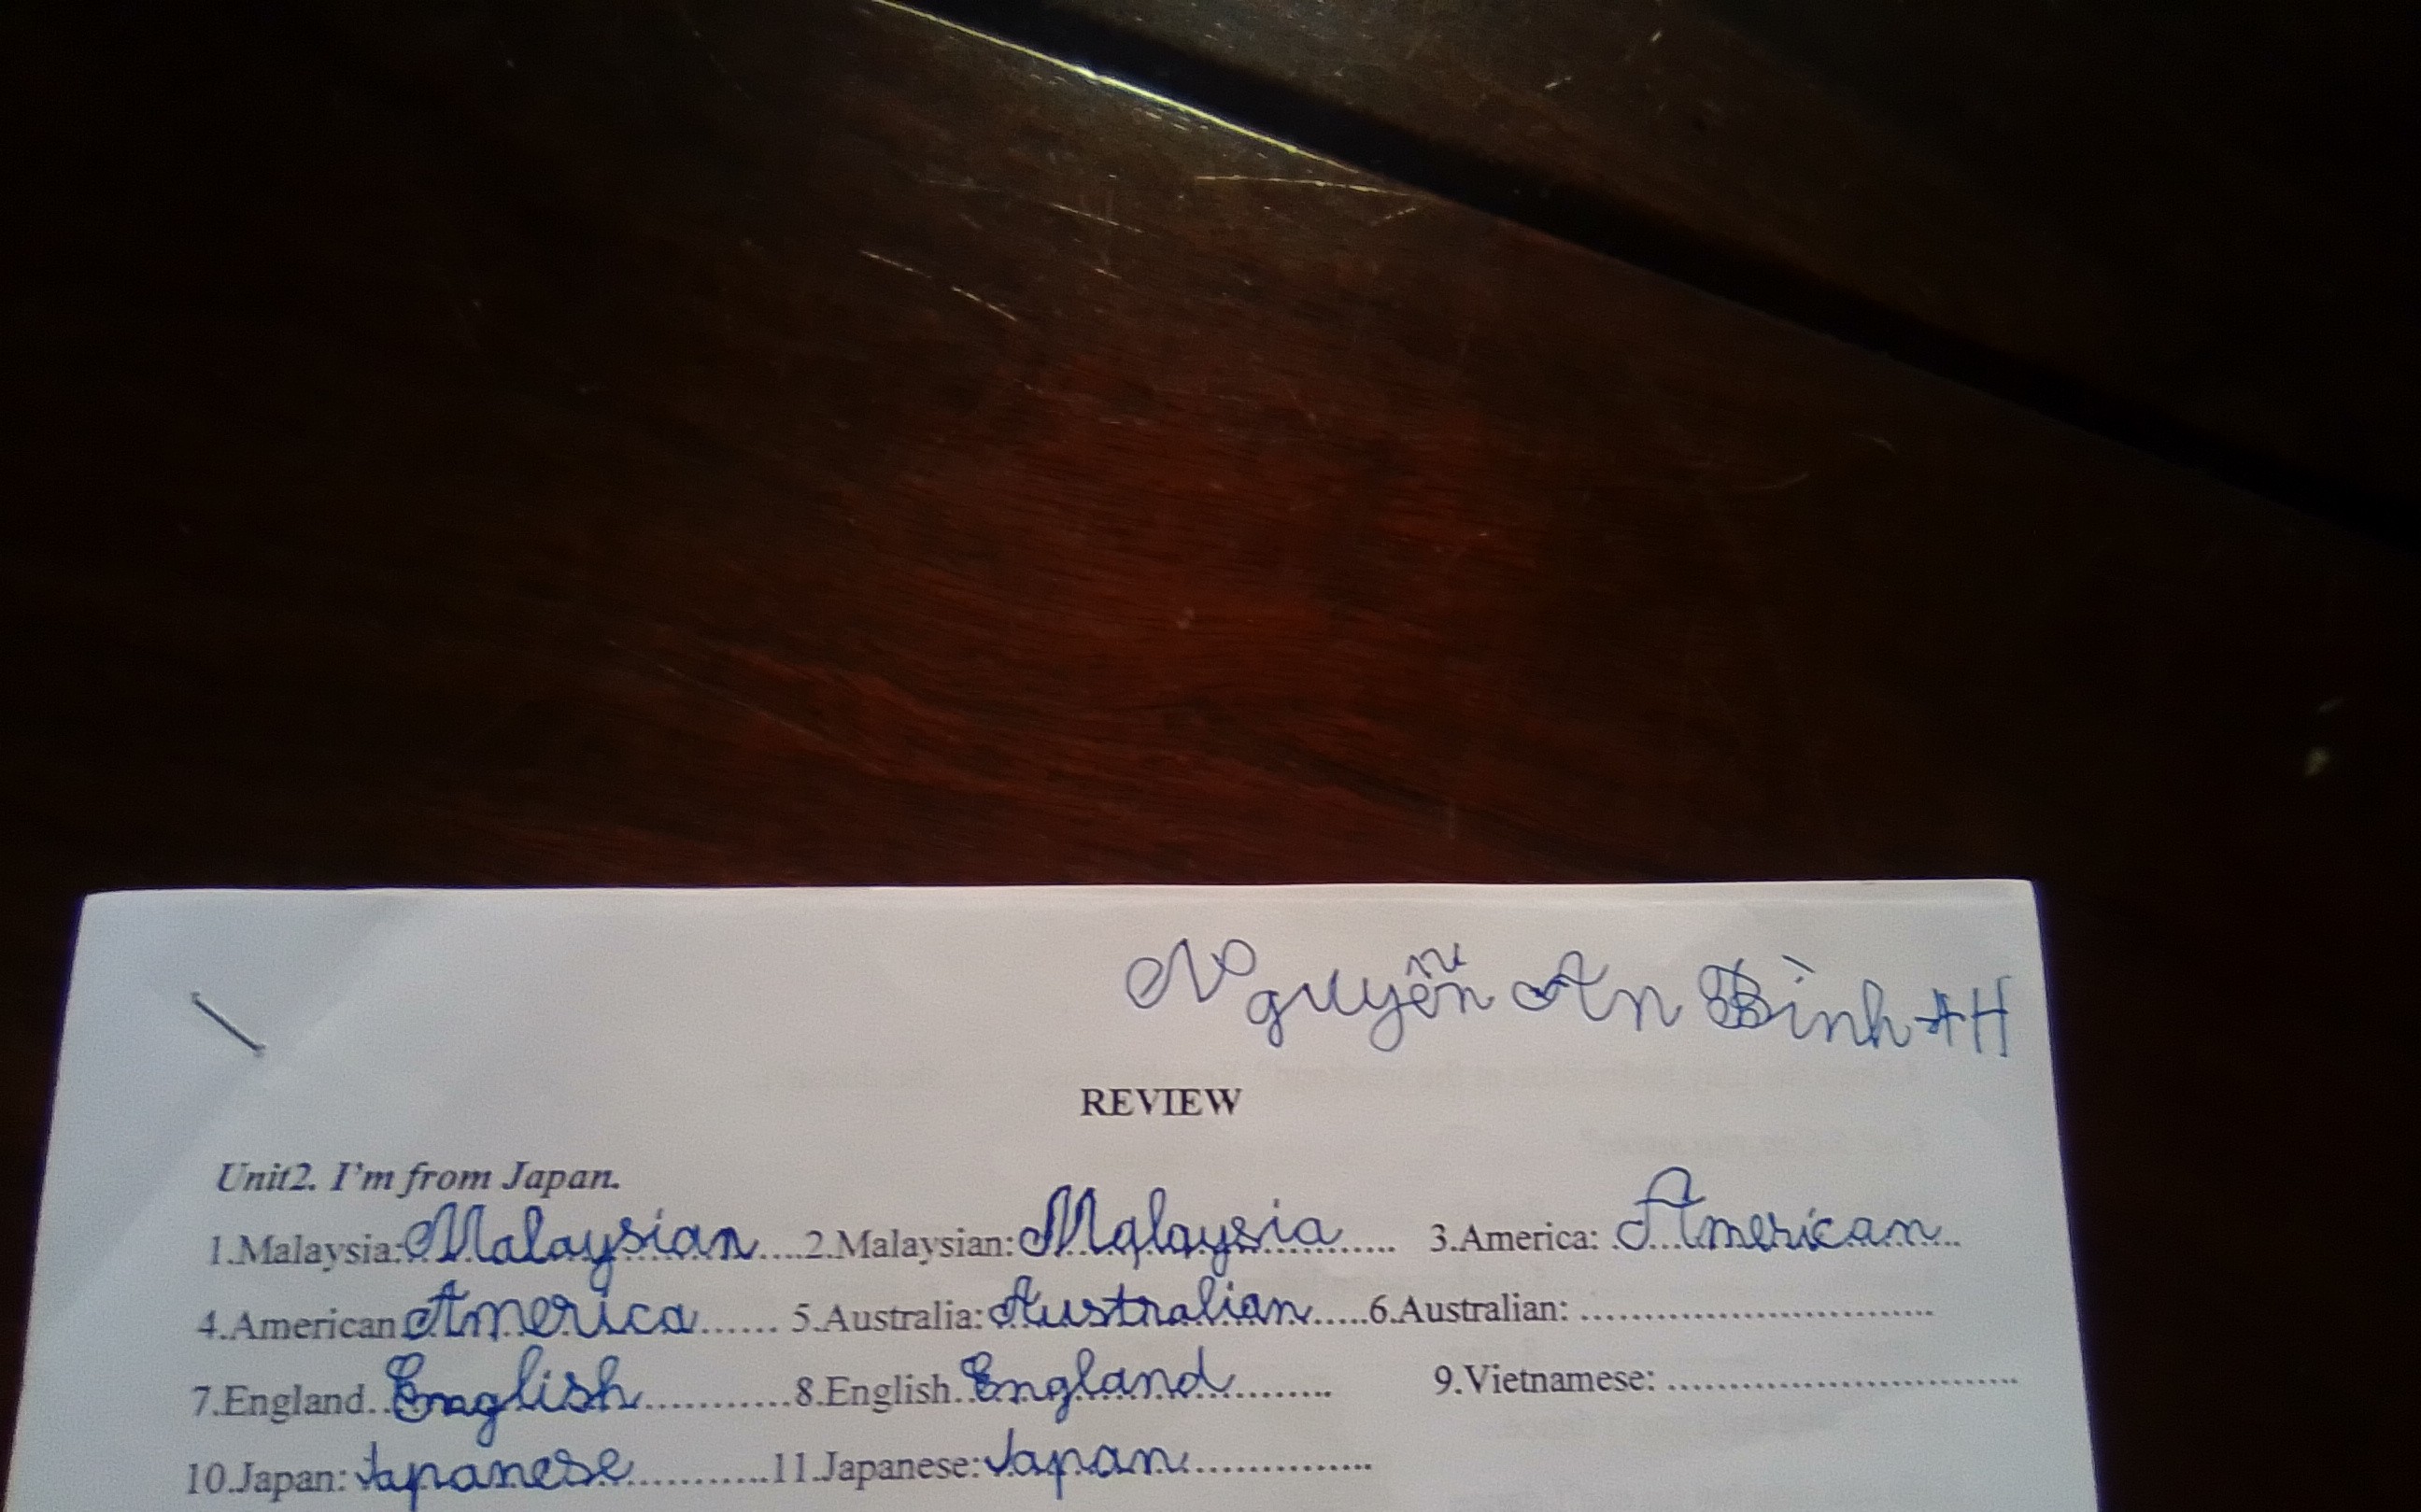 Nguyễn An Bình 4H
REVIEW
Unit2. I'm from Japan.
1.Malaysia: Malaysian....2.Malaysian: Malaysia...... 3.America: American..
4.American America...... 5.Australia: Australian.....6.Australian: ................................
7.England..English...........8.English..England......... 9.Vietnamese: ................................
10.Japan: Japanese..........11.Japanese: Japan................